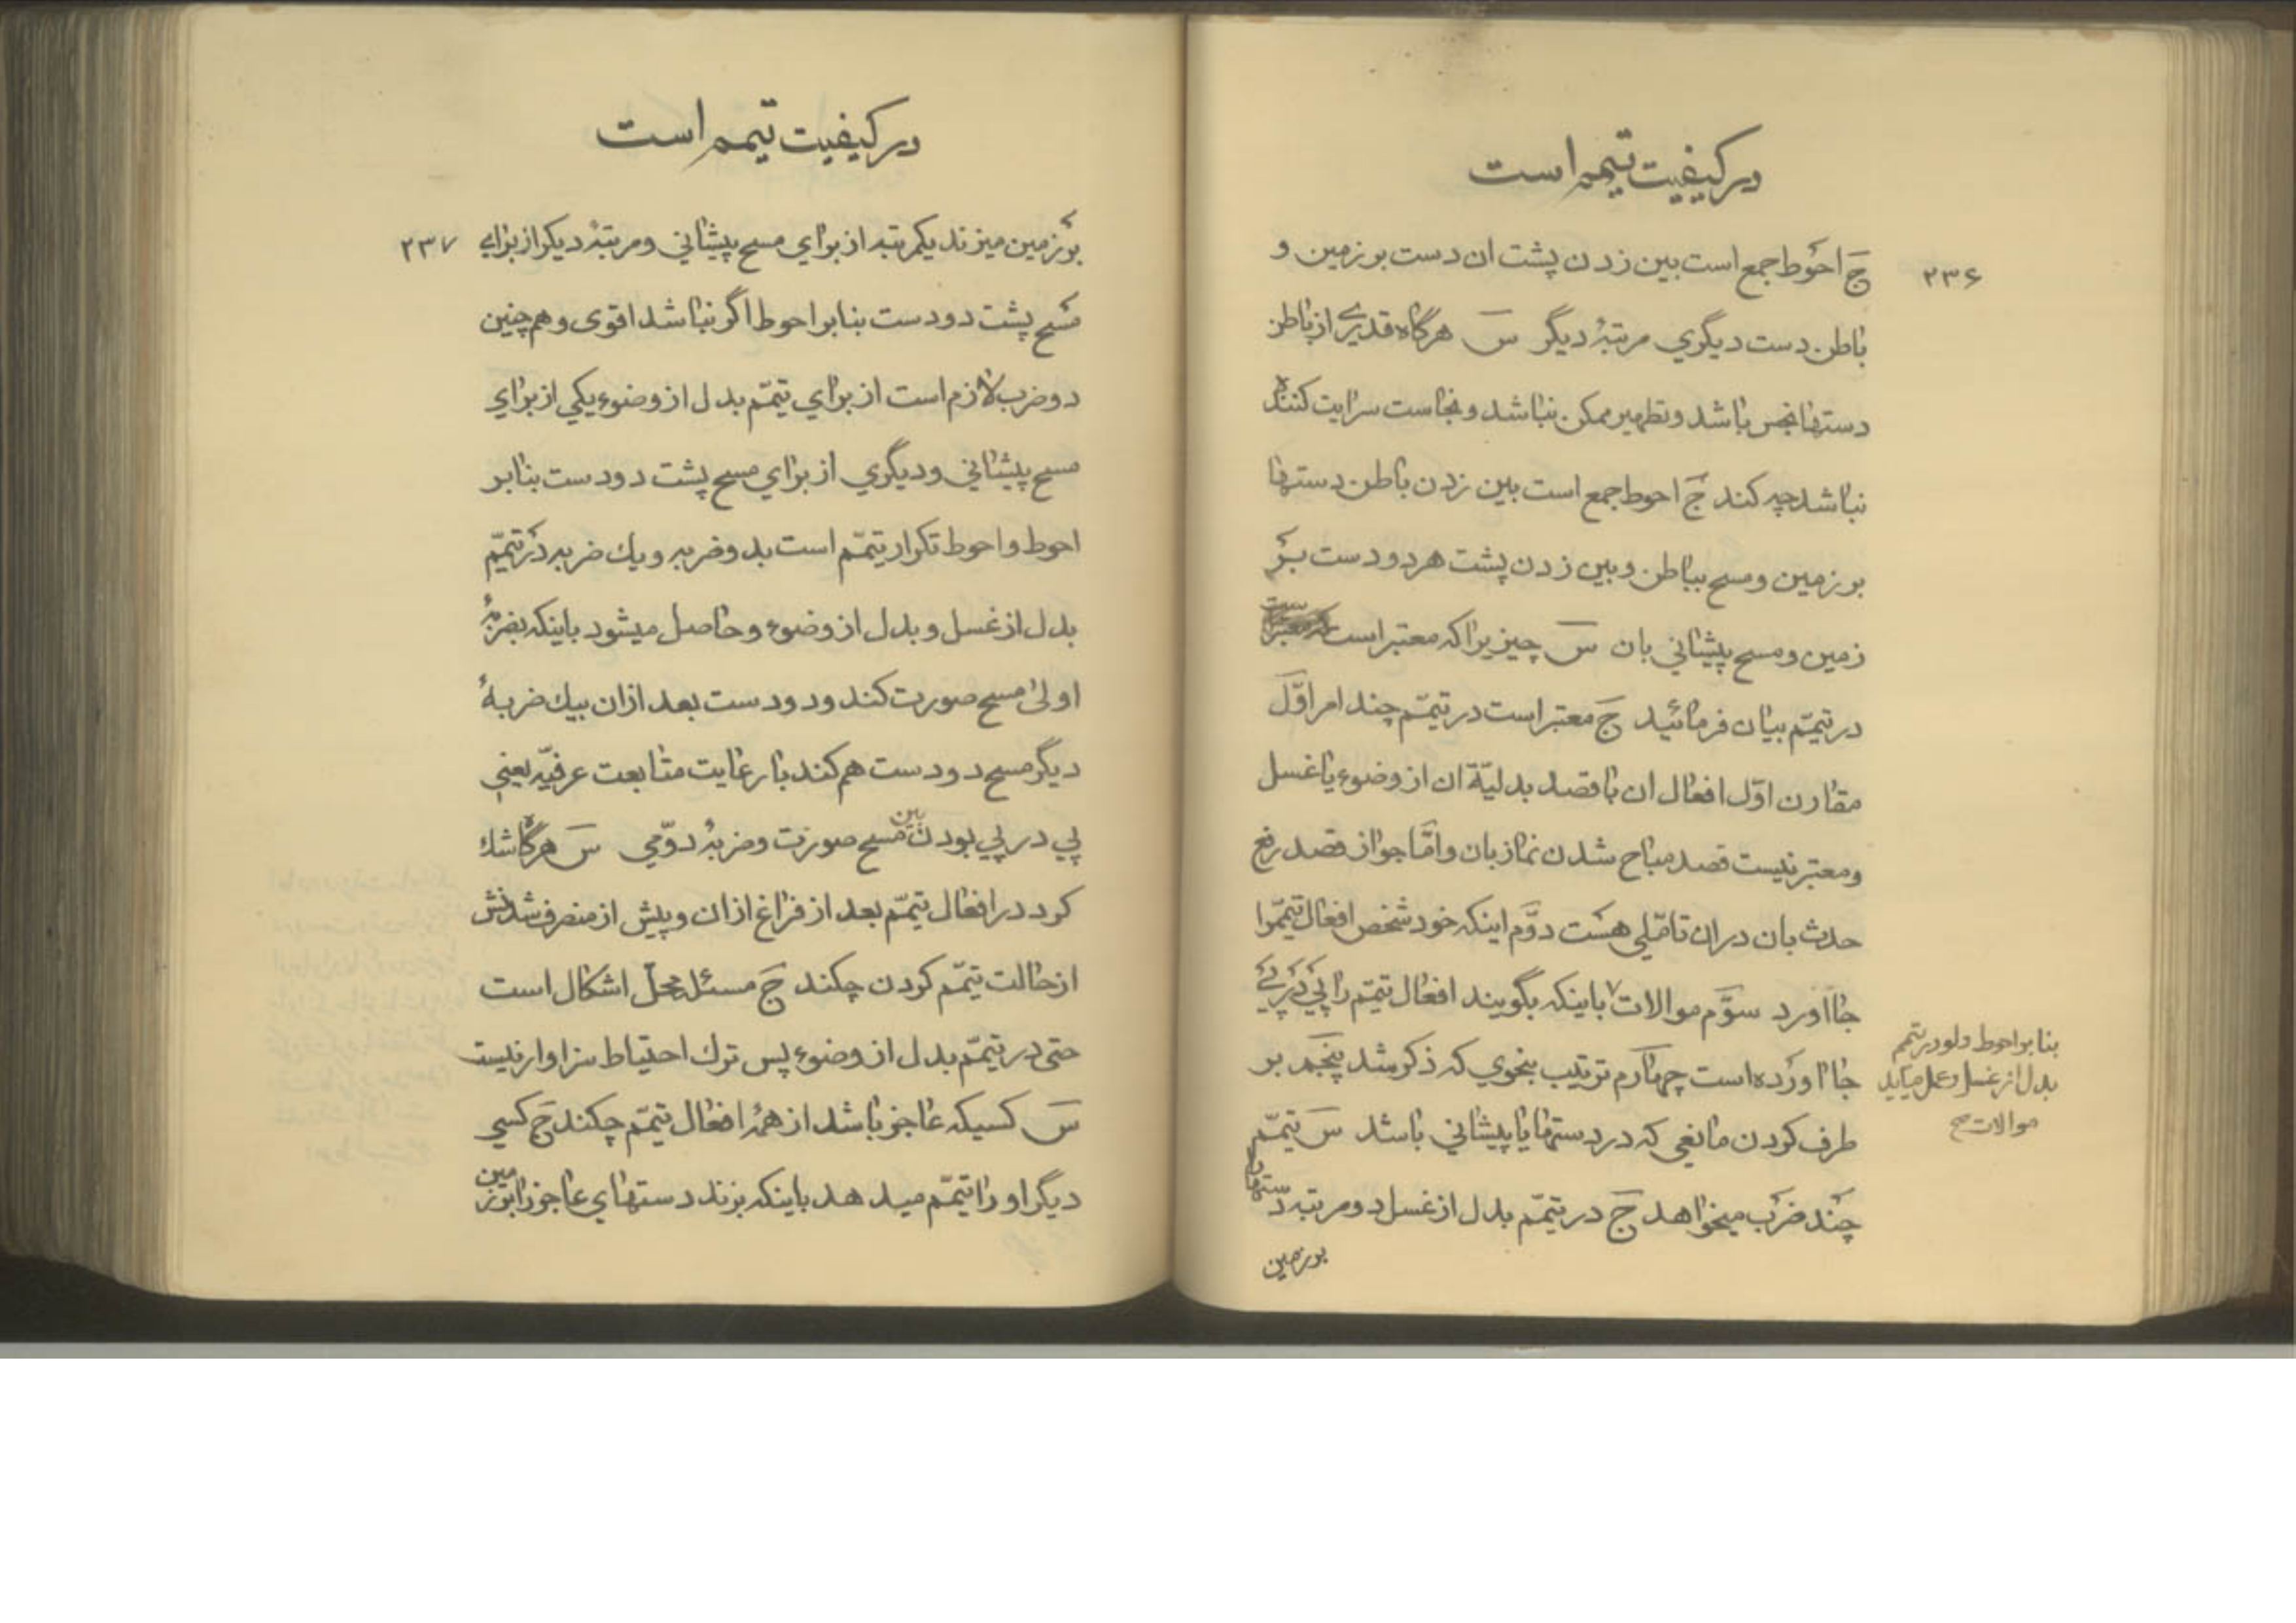 در کیفیت تیمم است
۲۳۶
ج احوط جمع است بین زدن پشت ان دست بر زمین و
باطن دست دیگری مرتبهٔ دیگر س هرگاه قدری از باطن
دستها نجس باشد و تطهیر ممکن نباشد و نجاست سرایت کننده
نباشد چه کند ج احوط جمع است بین زدن باطن دستها
بر زمین و مسح بباطن و بین زدن پشت هر دو دست بر
زمین و مسح پیشانی بان س چیزیرا که معتبر است
در تیمّم بیان فرمائید ج معتبر است در تیمّم چند امر اوّل
مقارن اوّل افعال ان با قصد بدلیّة ان از وضوء یا غسل
و معتبر نیست قصد مباح شدن نماز بان و امّا جواز قصد رفع
حدث بان در ان تامّلی هست دوّم اینکه خود شخص افعال تیمّم را
جا اورد سوّم موالات باینکه بگویند افعال تیمّم را پی در پی
جا اورده است چهارم ترتیب بنحوی که ذکر شد پنجم بر
طرف کردن مانعی که در دستها یا پیشانی باشد س تیمّم
چند ضرب میخواهد ج در تیمّم بدل از غسل دو مرتبه دستها را
بر زمین
بنا بر احوط ولو در تیمم
بدل از غسل و عمل میاید
موالات صح
در کیفیت تیمم است
۲۳۷
بر زمین میزند یکمرتبه از برای مسح پیشانی و مرتبهٔ دیگر از برای
مسح پشت دو دست بنا بر احوط اگر نباشد اقوی و هم چنین
دو ضرب لازم است از برای تیمّم بدل از وضوء یکی از برای
مسح پیشانی و دیگری از برای مسح پشت دو دست بنا بر
احوط و احوط تکرار تیمّم است بدو ضربه و یك ضربه در تیمّم
بدل از غسل و بدل از وضوء و حاصل میشود باینکه بضربهٔ
اولی مسح صورت کند و دو دست بعد از ان بیك ضربهٔ
دیگر مسح دو دست هم کند با رعایت متابعت عرفیّه یعنی
پی در پی بودن بین مسح صورت و ضربهٔ دوّمی س هرگاه شك
کرد در افعال تیمّم بعد از فراغ از ان و پیش از منصرف شدنش
از حالت تیمّم کردن چکند ج مسئله محلّ اشکال است
حتی در تیمّم بدل از وضوء پس ترك احتیاط سزاوار نیست
س کسیکه عاجز باشد از همهٔ افعال تیمّم چکند ج کسی
دیگر او را تیمّم میدهد باینکه بزند دستهای عاجز را بر زمین